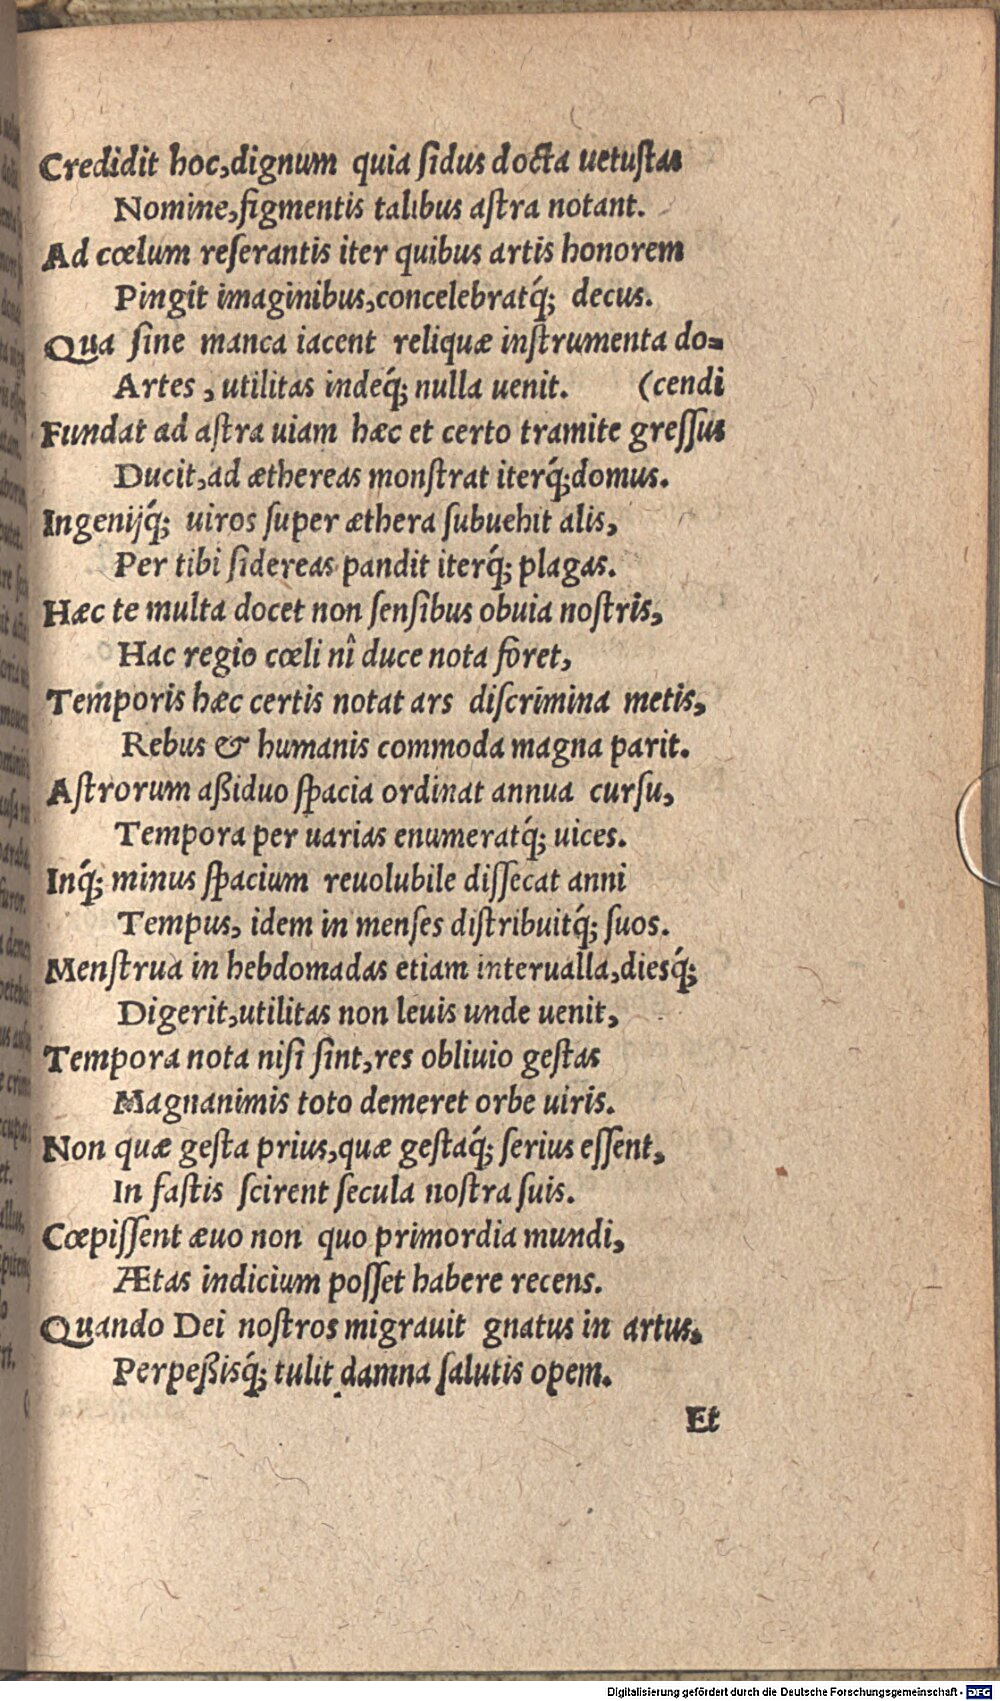 Credidit hoc, dignum quia ſidus docta uetuſtas
Nomine, figmentis talibus aſtra notant.
Ad cœlum reſerantis iter quibus artis honorem
Pingit imaginibus, concelebratq́; decus.
Qua ſine manca iacent reliquæ inſtrumenta do-
Artes, utilitas indeq́; nulla uenit. (cendi
Fundat ad aſtra uiam hæc et certo tramite greſſus
Ducit, ad æthereas monſtrat iterq́; domus.
Ingenijq́; uiros ſuper æthera ſubuehit alis,
Per tibi ſidereas pandit iterq́; plagas.
Hæc te multa docet non ſenſibus obuia noſtris,
Hac regio cœli nî duce nota foret,
Temporis hæc certis notat ars diſcrimina metis,
Rebus & humanis commoda magna parit.
Aſtrorum aßiduo ſpacia ordinat annua curſu,
Tempora per uarias enumeratq́; uices.
Inq́; minus ſpacium reuolubile diſſecat anni
Tempus, idem in menſes diſtribuitq́; ſuos.
Menſtrua in hebdomadas etiam interualla, diesq́;
Digerit, utilitas non leuis unde uenit,
Tempora nota niſi ſint, res obliuio geſtas
Magnanimis toto demeret orbe uiris.
Non quæ geſta prius, quæ geſtaq́; ſerius eſſent,
In faſtis ſcirent ſecula noſtra ſuis.
Cœpiſſent æuo non quo primordia mundi,
Ætas indicium poſſet habere recens.
Quando Dei noſtros migrauit gnatus in artus,
Perpeßisq́; tulit damna ſalutis opem.
Et
Digitalisierung gefördert durch die Deutsche Forschungsgemeinschaft - DFG